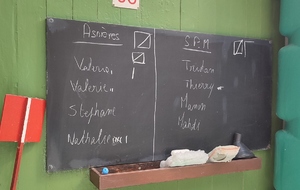 Asnières
Valerie
Valerie
Stephane
Nathalie
Tristan
Thierry
Manon
Mahdi